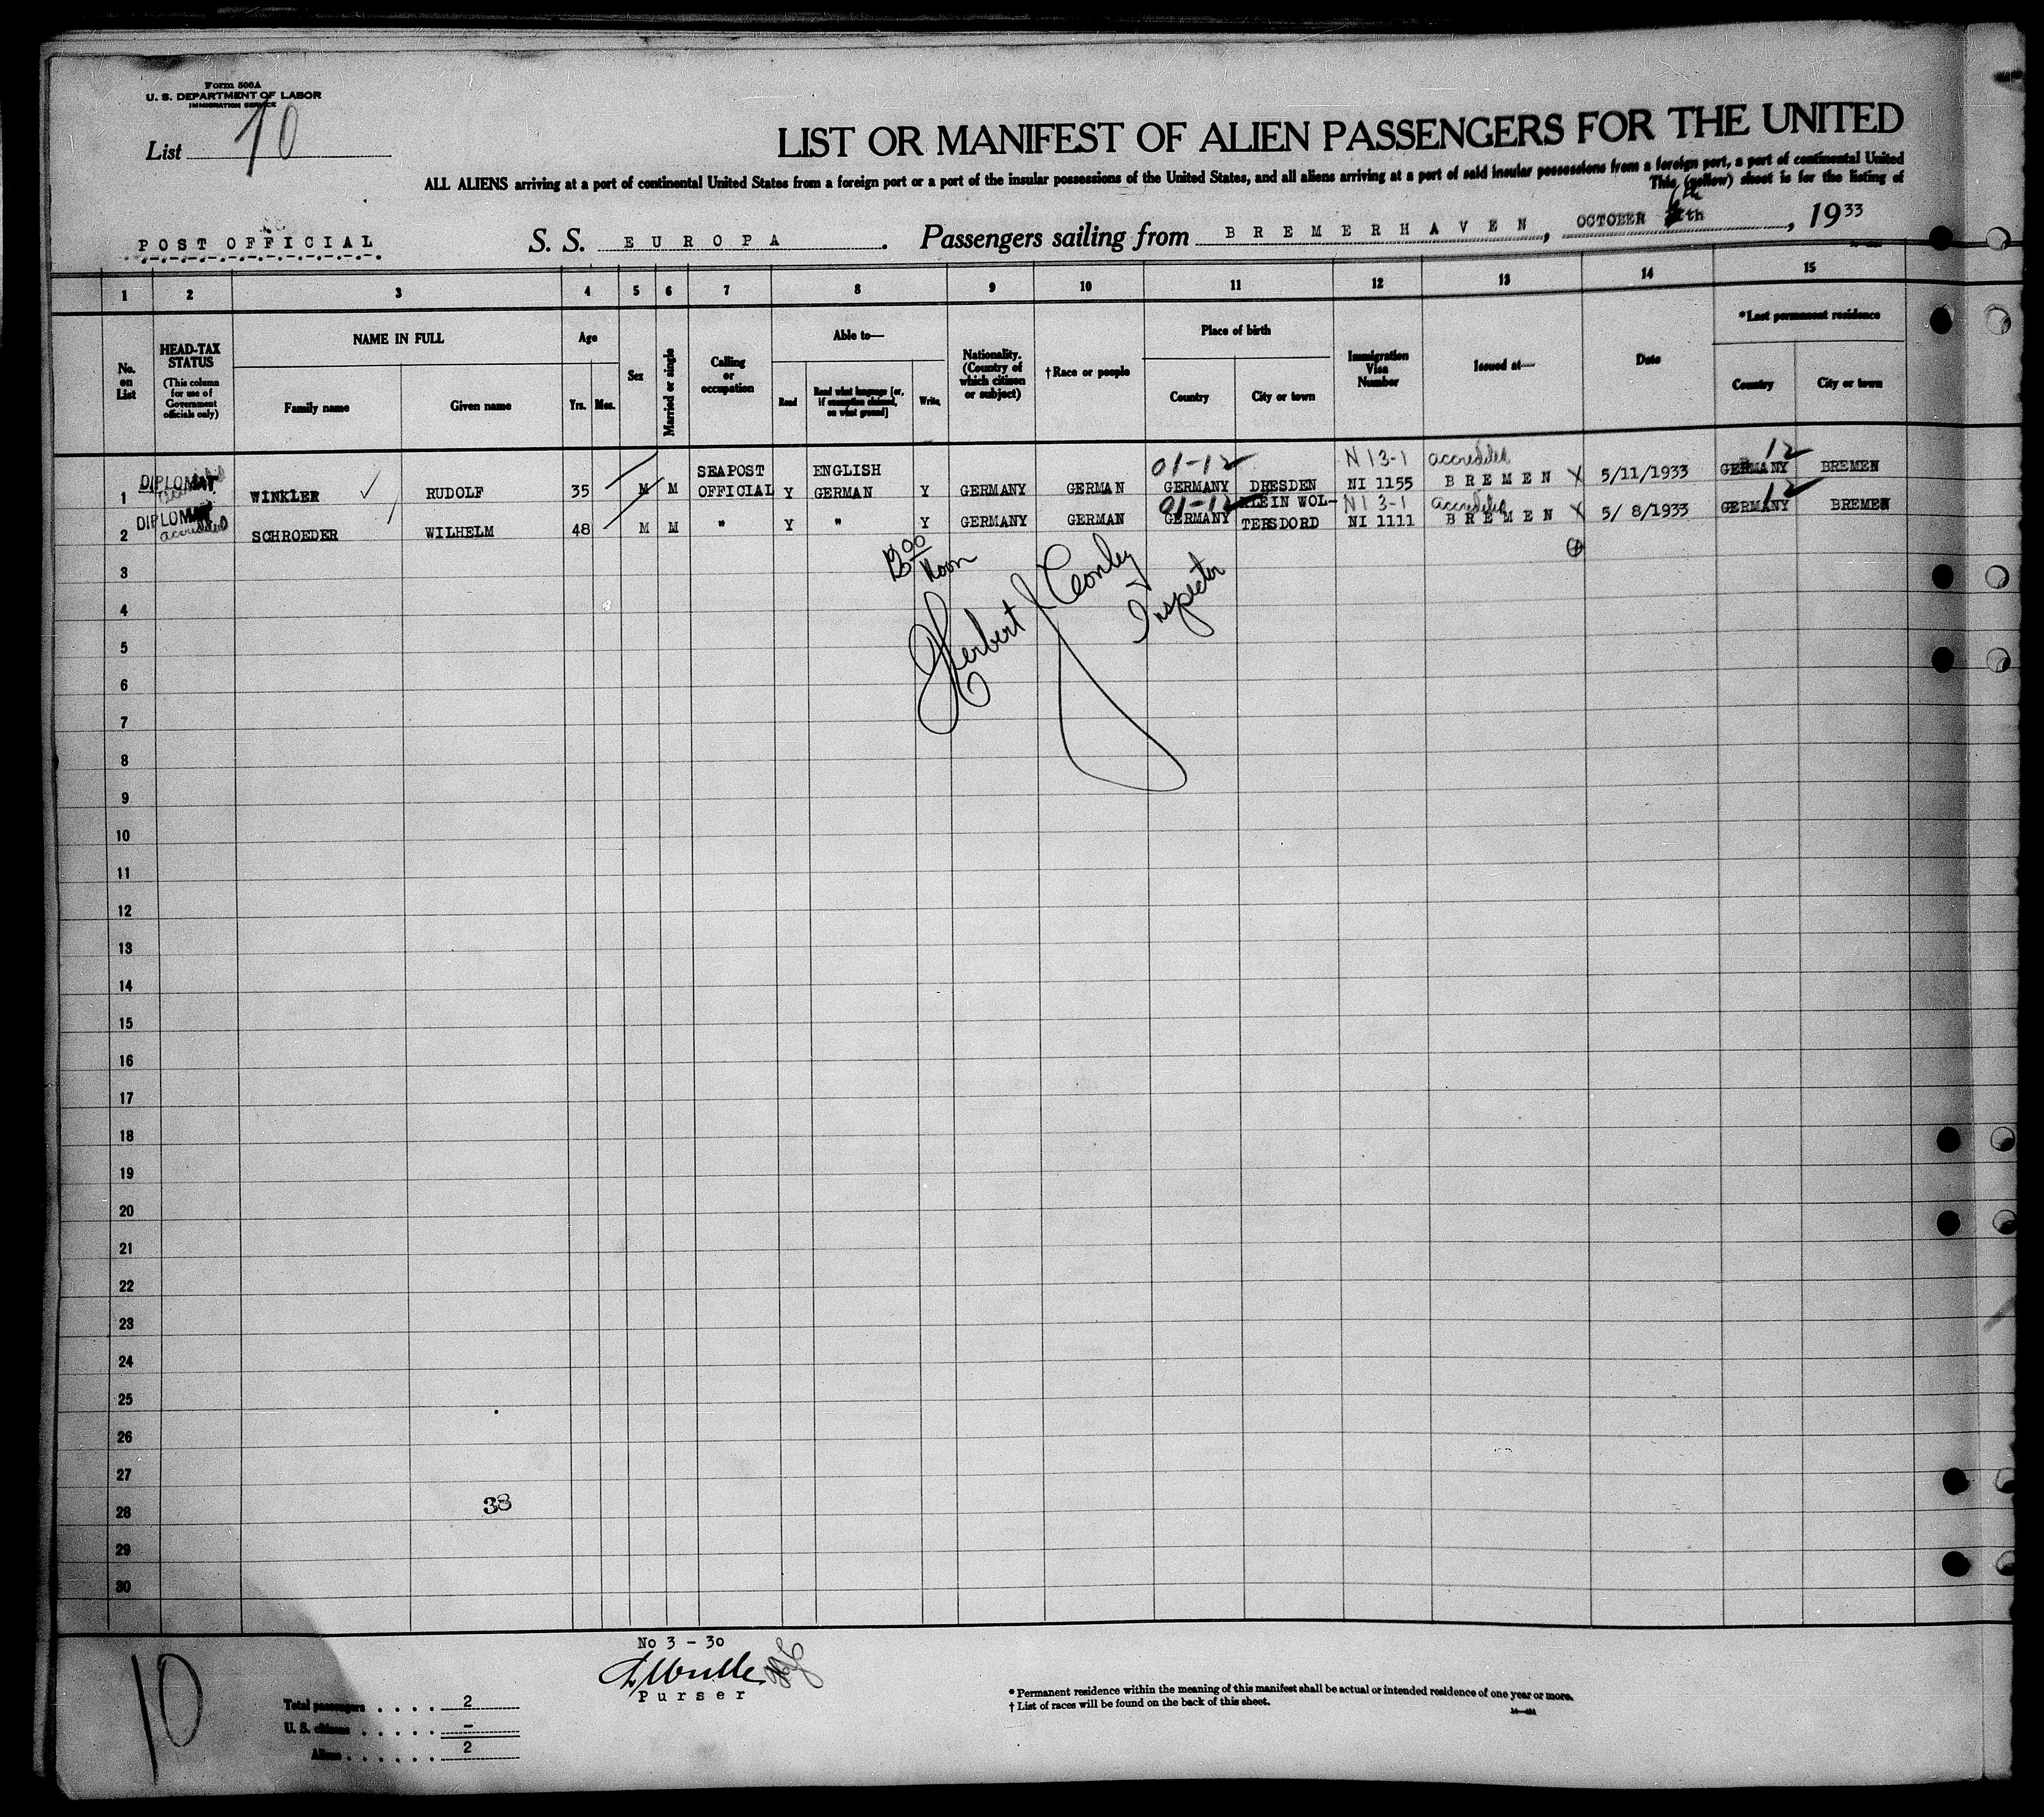 Form 500A
U. S. DEPARTMENT OF LABOR
IMMIGRATION SERVICE
List 10
LIST OR MANIFEST OF ALIEN PASSENGERS FOR THE UNITED
ALL ALIENS arriving at a port of continental United States from a foreign port or a port of the insular possessions of the United States, and all aliens arriving at a port of said insular possessions from a foreign port, a port of continental United
This (yellow) sheet is for the listing of
POST OFFICIAL
S. S. EUROPA. Passengers sailing from BREMERHAVEN, OCTOBER th, 1933
1 2 3 4 5 6 7 8 9 10 11 12 13 14 15
No. on List
HEAD-TAX STATUS
(This column for use of Government officials only)
NAME IN FULL
Family name Given name
Age
Yrs. Mos.
Sex
Married or single
Calling or occupation
Able to—
Read
Read what language [or, if exemption claimed, on what ground]
Write
Nationality. (Country of which citizen or subject)
† Race or people
Place of birth
Country City or town
Immigration Visa Number
Issued at—
Date
*Last permanent residence
Country City or town
01-12 N I 3-1 accredited 12
1 DIPLOMAT accredited WINKLER RUDOLF 35 M M SEAPOST OFFICIAL Y ENGLISH GERMAN Y GERMANY GERMAN GERMANY DRESDEN NI 1155 BREMEN 5/11/1933 GERMANY BREMEN
01-12 N I 3-1 accredited 12
2 DIPLOMAT accredited SCHROEDER WILHELM 48 M M " Y " Y GERMANY GERMAN GERMANY KLEIN WOL-TERSDORD NI 1111 BREMEN 5/ 8/1933 GERMANY BREMEN
3
Noon
4
Herbert J Conley
Inspector
5
6
7
8
9
10
11
12
13
14
15
16
17
18
19
20
21
22
23
24
25
26
27
28
38
29
30
No 3 - 30
Purser
10
Total passengers .... 2
U. S. citizens ..... -
Aliens ...... 2
* Permanent residence within the meaning of this manifest shall be actual or intended residence of one year or more.
† List of races will be found on the back of this sheet.